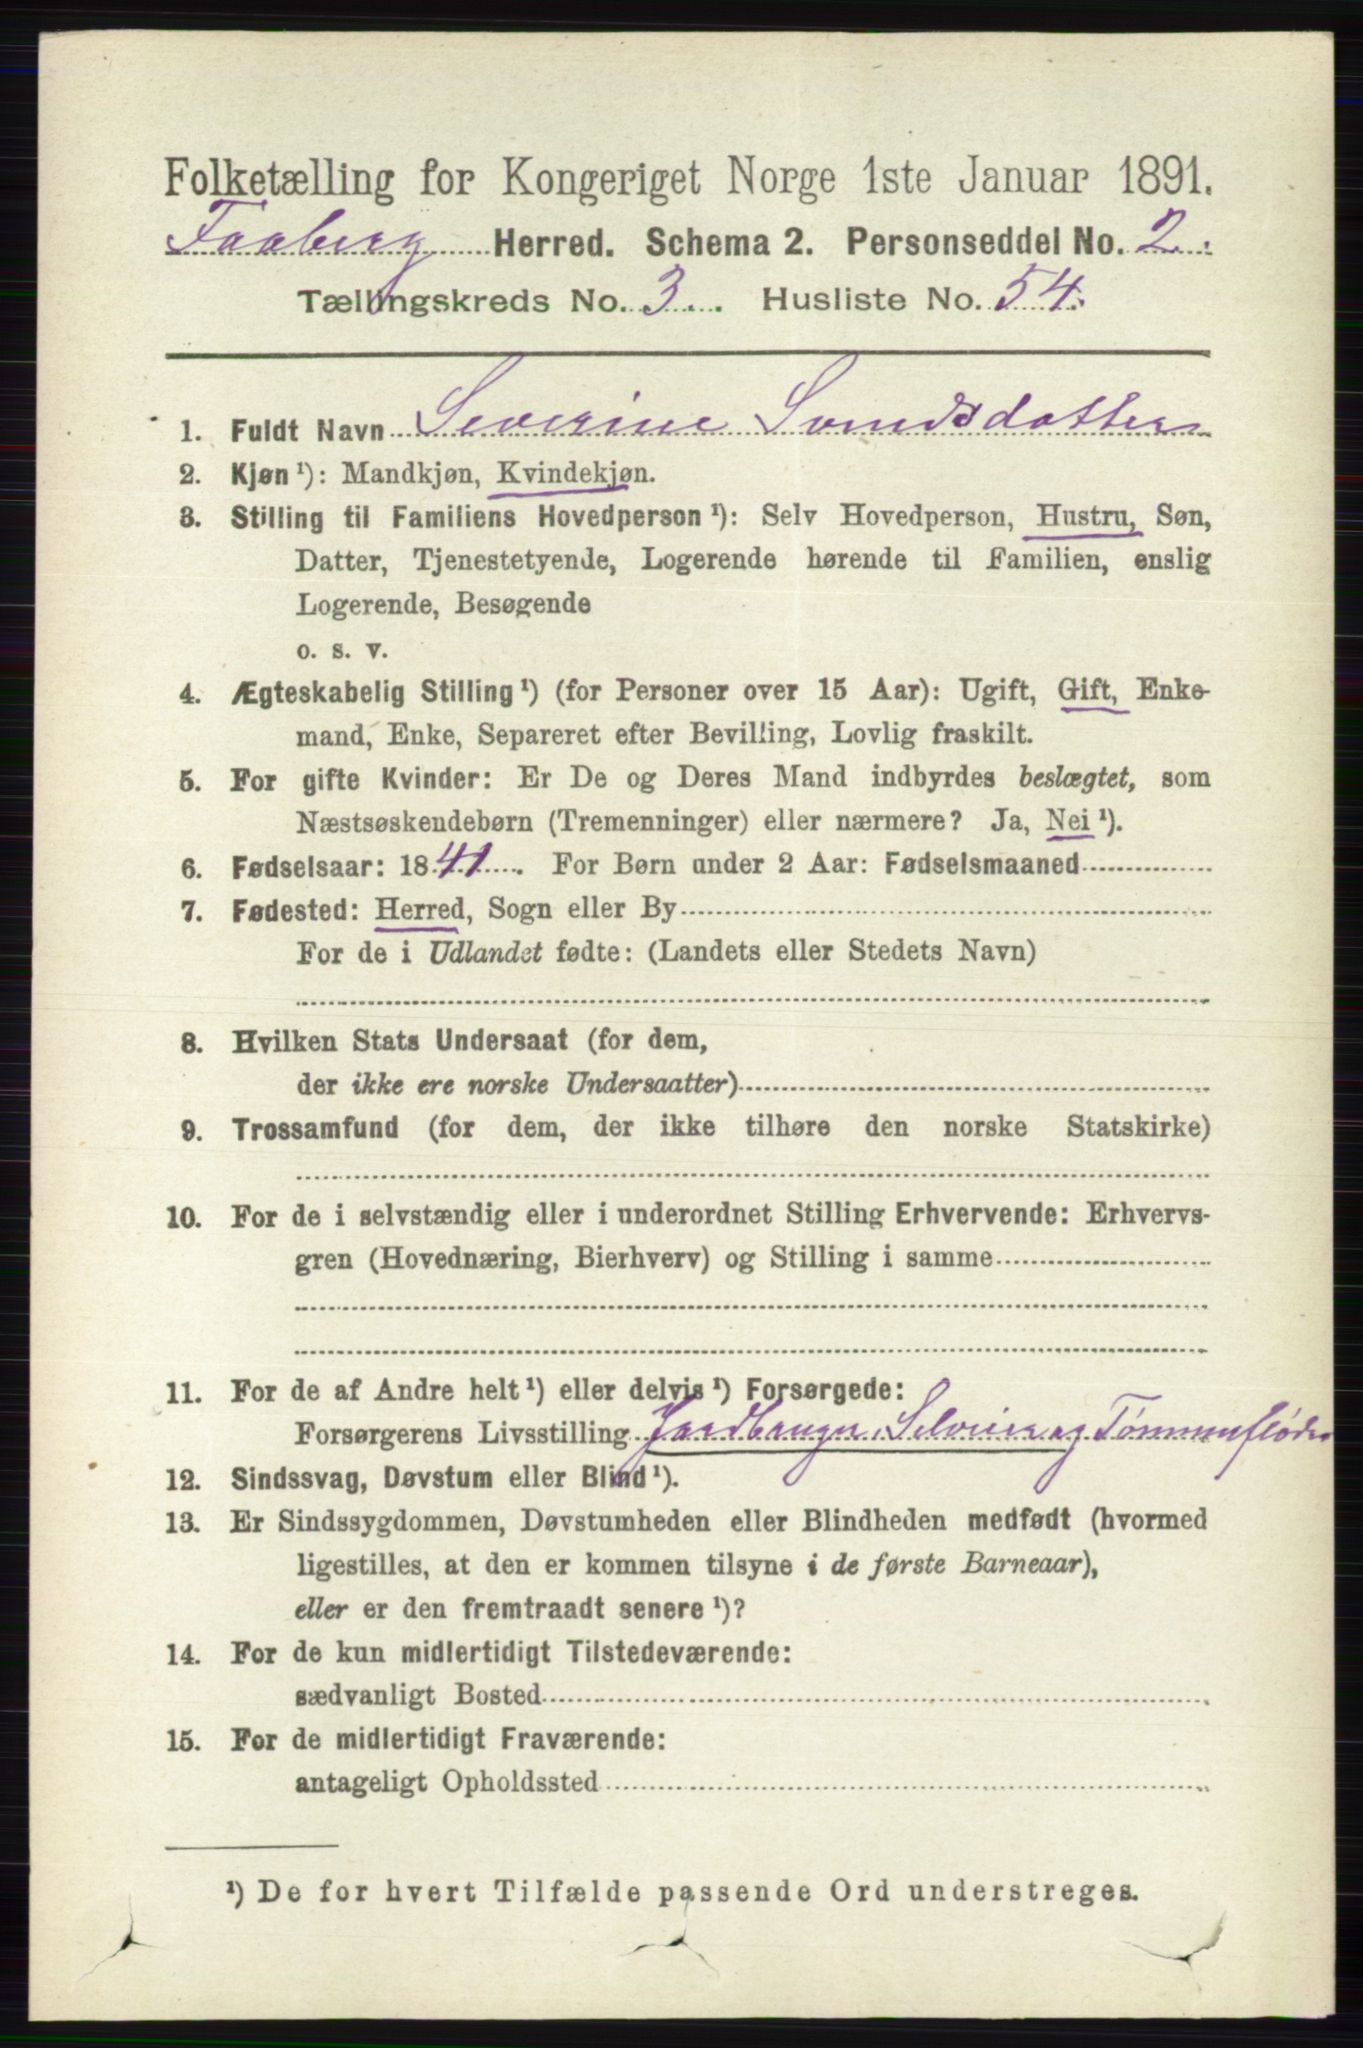 Folketælling for Kongeriget Norge 1ste Januar 1891.
Faaberg Herred. Schema 2. Personseddel No. 2.
Tællingskreds No. 3. Husliste No. 54.
1. Fuldt Navn Severine Svendsdatter
2. Kjøn ¹): Mandkjøn, Kvindekjøn.
3. Stilling til Familiens Hovedperson ¹): Selv Hovedperson, Hustru, Søn,
Datter, Tjenestetyende, Logerende hørende til Familien, enslig
Logerende, Besøgende
o. s. v.
4. Ægteskabelig Stilling ¹) (for Personer over 15 Aar): Ugift, Gift, Enke-
mand, Enke, Separeret efter Bevilling, Lovlig fraskilt.
5. For gifte Kvinder: Er De og Deres Mand indbyrdes beslægtet, som
Næstsøskendebørn (Tremenninger) eller nærmere? Ja, Nei ¹).
6. Fødselsaar: 1841. For Børn under 2 Aar: Fødselsmaaned
7. Fødested: Herred, Sogn eller By
For de i Udlandet fødte: (Landets eller Stedets Navn)
8. Hvilken Stats Undersaat (for dem,
der ikke ere norske Undersaatter)
9. Trossamfund (for dem, der ikke tilhøre den norske Statskirke)
10. For de i selvstændig eller i underordnet Stilling Erhvervende: Erhvervs-
gren (Hovednæring, Bierhverv) og Stilling i samme
11. For de af Andre helt ¹) eller delvis ¹) Forsørgede:
Forsørgerens Livsstilling Jordbruger, Selveier og Tømmerfløder
12. Sindssvag, Døvstum eller Blind ¹).
13. Er Sindssygdommen, Døvstumheden eller Blindheden medfødt (hvormed
ligestilles, at den er kommen tilsyne i de første Barneaar),
eller er den fremtraadt senere ¹)?
14. For de kun midlertidigt Tilstedeværende:
sædvanligt Bosted
15. For de midlertidigt Fraværende:
antageligt Opholdssted
¹) De for hvert Tilfælde passende Ord understreges.